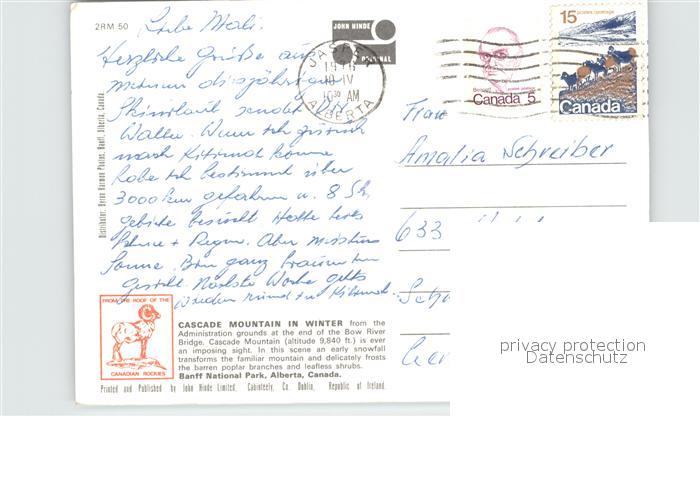 2RM 50
Liebe Mali.
Herzliche Grüße aus
meinem diesjährigen
Skiurlaub sendet Dir
Walter. Wenn ich
nach Kitimat komme
habe ich bestimmt über
3000 km gefahren u. 8 Ski
gebiete besucht. Hatte
+ Regen. Aber meistens
Sonne. Bin ganz braun
Nächste Woche gehts
wieder zurück Kitimat.
JOHN HINDE
ORIGINAL
JASPER
10 IV
10 30 AM
ALBERTA
Canada 5
15 postes/postage
Canada
Frau
Amalia Schreiber
633
Distributor: Byron Harmon Photos, Banff, Alberta, Canada
FROM THE ROOF OF THE
CANADIAN ROCKIES
CASCADE MOUNTAIN IN WINTER from the
Administration grounds at the end of the Bow River
Bridge. Cascade Mountain (altitude 9,840 ft.) is ever
an imposing sight. In this scene an early snowfall
transforms the familiar mountain and delicately frosts
the barren poplar branches and leafless shrubs.
Banff National Park, Alberta, Canada.
Printed and Published by John Hinde Limited, Cabinteely, Co. Dublin, Republic of Ireland.
privacy protection
Datenschutz